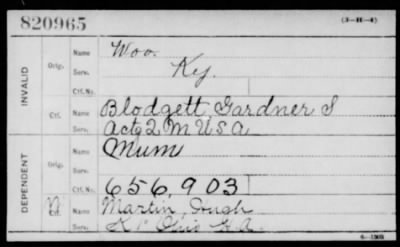 820965 (3-H-4)
INVALID
Orig. Name Woo.
Serv. Ky.
Ctf. No.
Ctf. Name Blodgett, Gardner S
Serv. Actg 2 M U S A
DEPENDENT
Orig. Name Mum
Serv.
Ctf. No. 656,903
Ctf. Name Martin, Hugh
Serv. K1 Ohio H.A.
6-1903